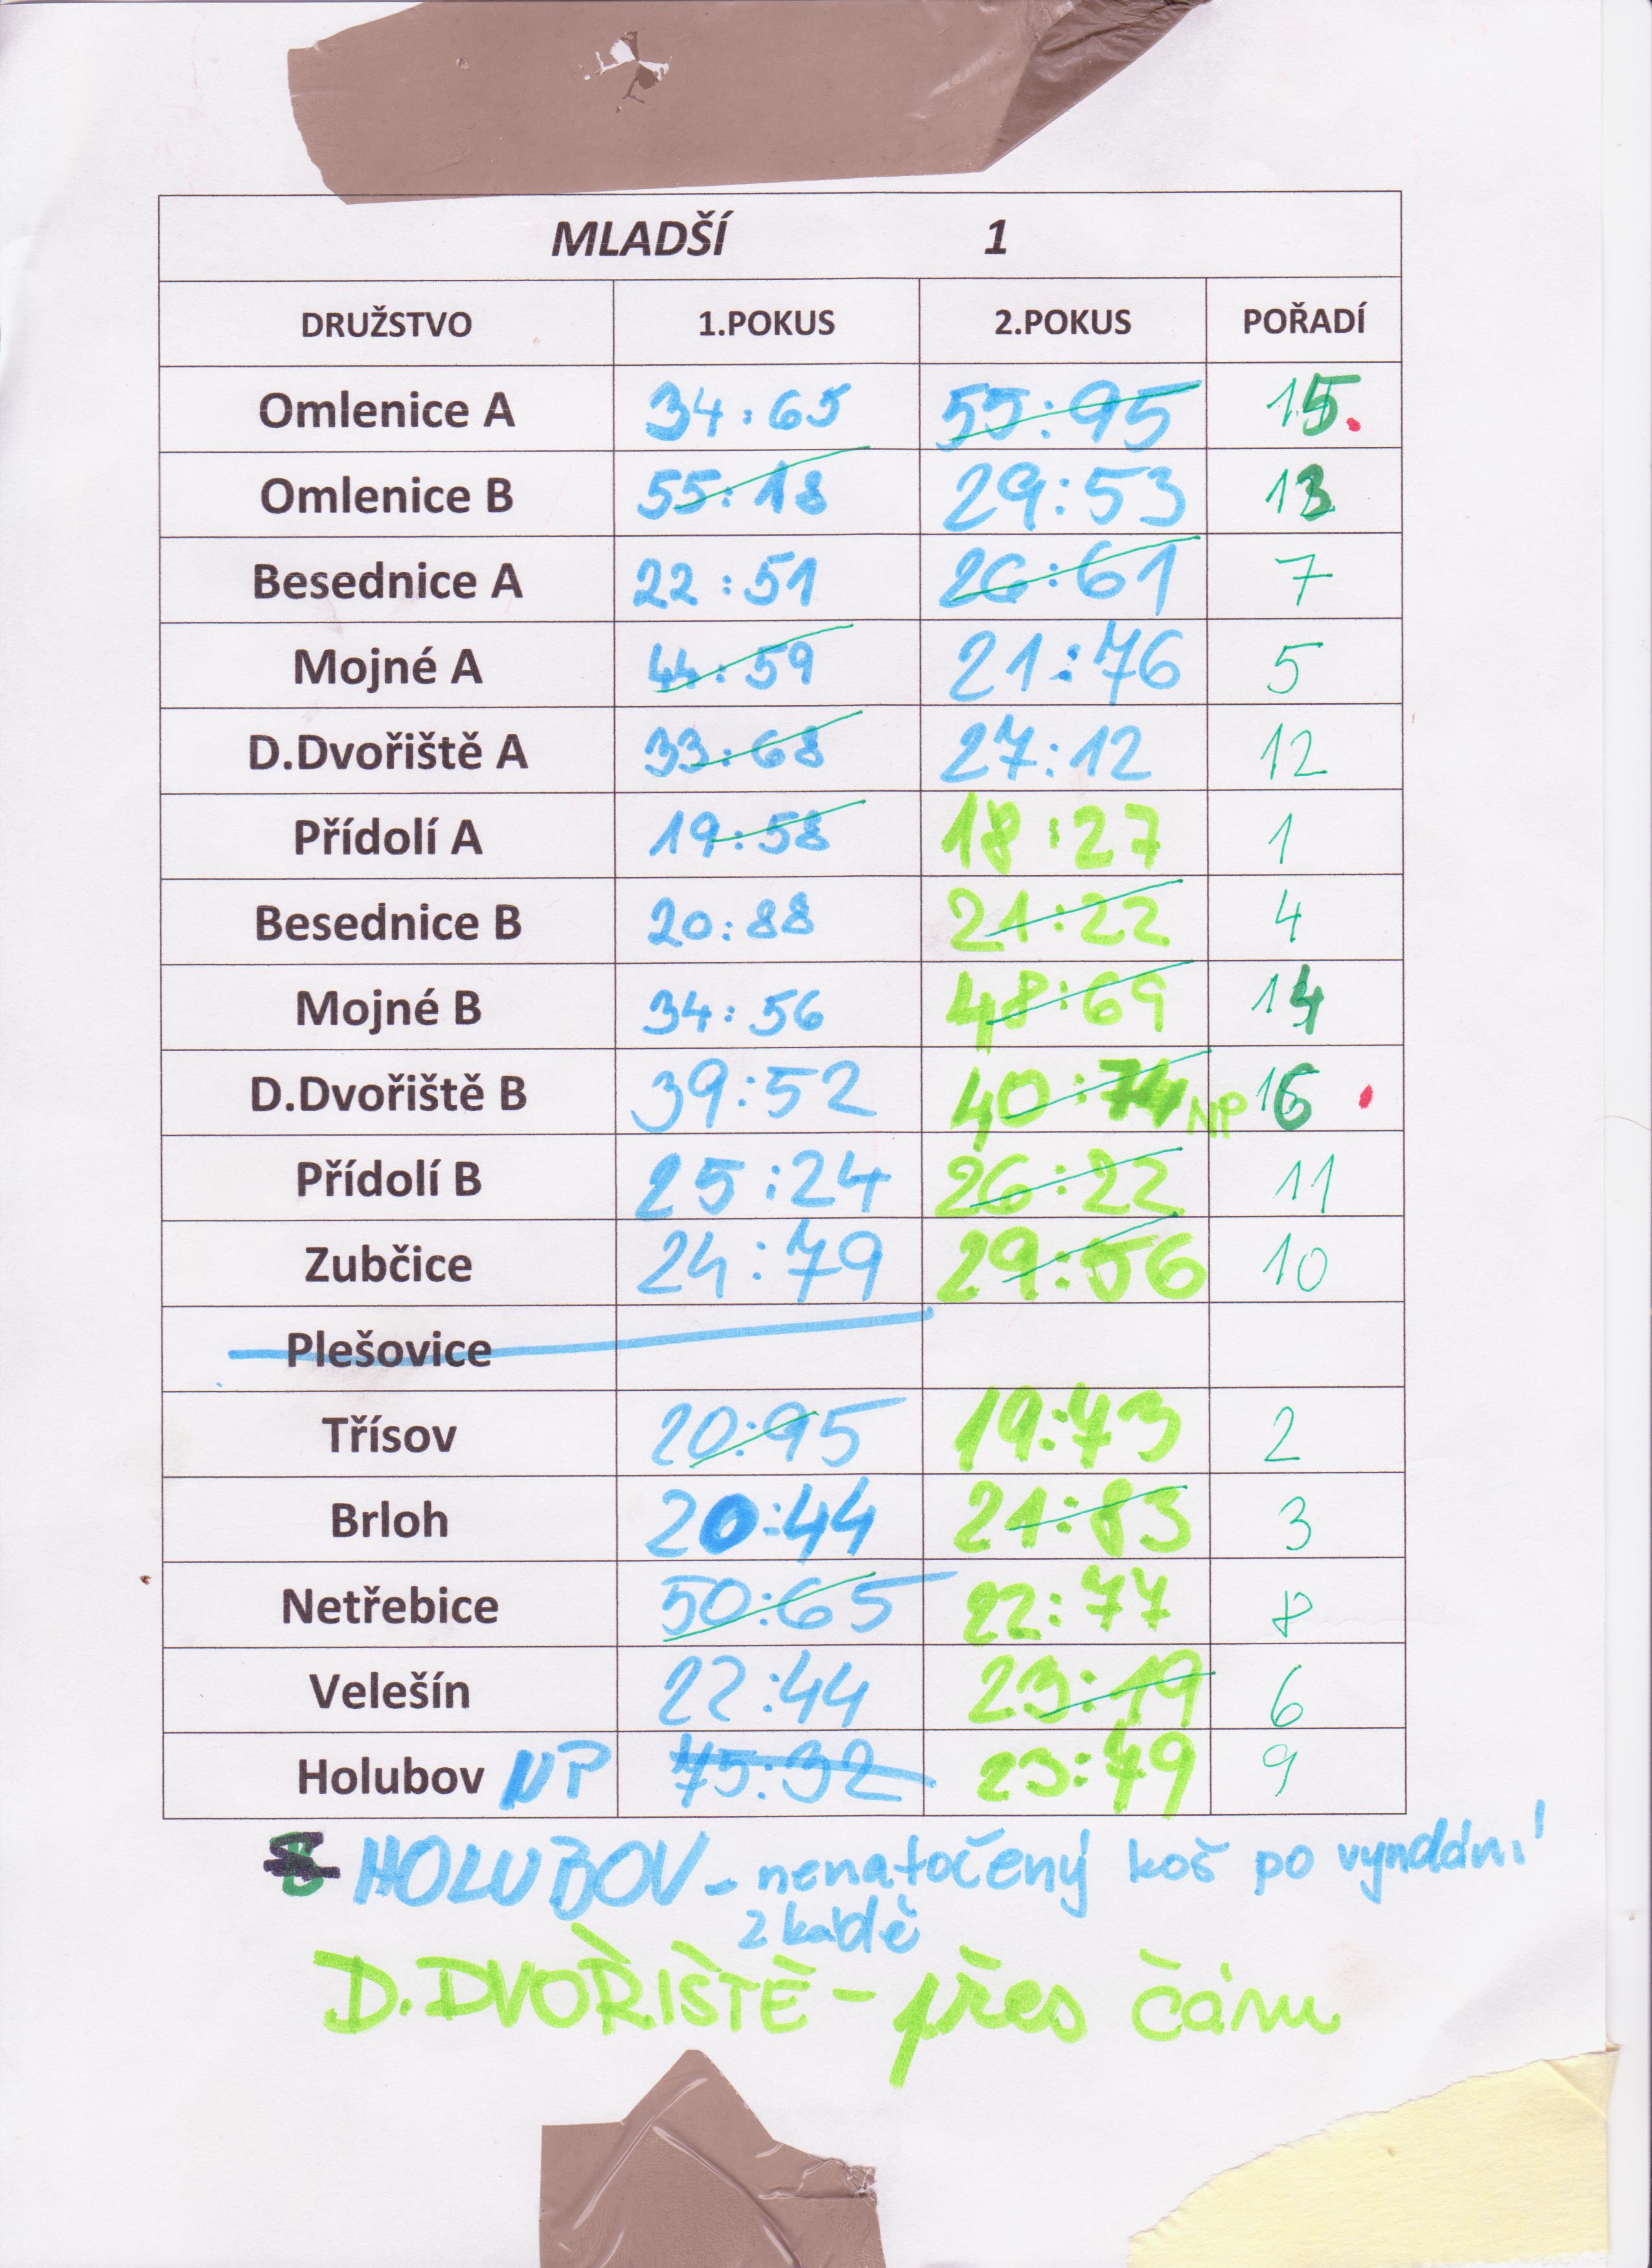 MLADŠÍ 1
DRUŽSTVO 1.POKUS 2.POKUS POŘADÍ
Omlenice A 34:65 55:95 15.
Omlenice B 55:18 29:53 13
Besednice A 22:51 26:61 7
Mojné A 44:59 21:76 5
D.Dvořiště A 33:68 27:12 12
Přídolí A 19:58 18:27 1
Besednice B 20:88 21:22 4
Mojné B 34:56 48:69 14
D.Dvořiště B 39:52 40:74 NP 16
Přídolí B 25:24 26:22 11
Zubčice 24:79 29:56 10
Plešovice
Třísov 20:95 19:73 2
Brloh 20:44 21:83 3
Netřebice 50:65 22:77 8
Velešín 22:44 23:19 6
Holubov NP 75:32 23:79 9
HOLUBOV - nenatočený koš po vyndání
z kádě
D.DVOŘIŠTĚ - přes čáru